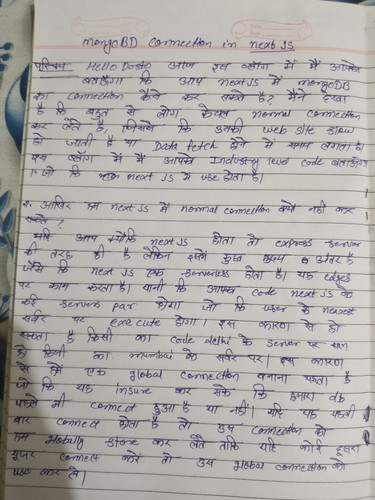 mongoBD connection in next JS
परिचय Hello Dosto आज इस ब्लॉग में मैं आपको
बताऊंगा कि आप next JS में mongoDB
का connection कैसे कर सकते है? मैंने देखा
है कि बहुत से लोग केवल normal connection
कर लेते है, जिससे कि उनकी web site slow
हो जाती है या Data fetch होने में समय लगता है।
इस ब्लॉग में मैं आपको Industry level code बताऊंगा
जो कि next JS में use होता है।
2. आखिर हम next JS में normal connection क्यों नही कर
सकते ?
यदि आप next JS होता तो express server
की तरह ही है लेकिन इसमें कुछ अंतर है
जैसे कि next JS एक serverless होता है। यह edges
पर काम करता है। यानी कि आपका code next JS के
कई servers par होगा जो कि user के nearest
सर्वर पर execute होगा। इस कारण से हो
सकता है किसी का code delhi के server पर रन
हो किसी का mumbai के सर्वर पर। इस कारण
से हमें एक global connection बनाना पड़ता है
जो कि यह insure कर सके कि हमारा db
पहले भी connect हुआ है या नहीं। यदि यह पहली
बार connect होता है तो हम connection को
हम globally store कर लेते ताकि यदि कोई दूसरा
यूजर connect करे तो हम global connection को
use कर ले।